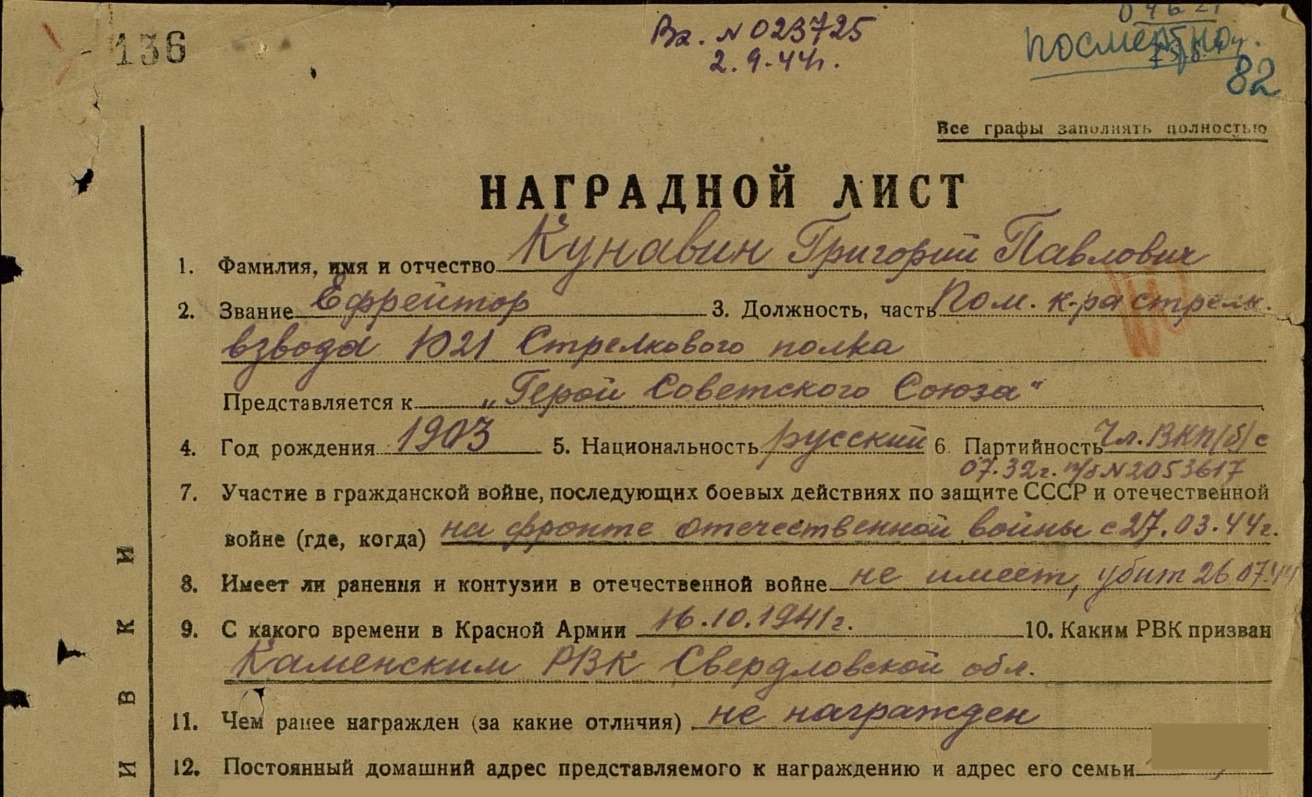 136
Вх. № 023725
2.9.44г.
посмертно
82
Все графы заполнять полностью
НАГРАДНОЙ ЛИСТ
1. Фамилия, имя и отчество Кунавин Григорий Павлович
2. Звание Ефрейтор 3. Должность, часть Пом. к-ра стрелк.
взвода 1021 Стрелкового полка
Представляется к „Герой Советского Союза"
4. Год рождения 1903 5. Национальность русский 6. Партийность Чл. ВКП/б/ с
07.32г. п/б № 2053617
7. Участие в гражданской войне, последующих боевых действиях по защите СССР и отечественной
войне (где, когда) на фронте отечественной войны с 27.03.44г.
8. Имеет ли ранения и контузии в отечественной войне не имеет, убит 26.07.44
9. С какого времени в Красной Армии 16.10.1941г. 10. Каким РВК призван
Каменским РВК Свердловской обл.
11. Чем ранее награжден (за какие отличия) не награжден
12. Постоянный домашний адрес представляемого к награждению и адрес его семьи
И В К И